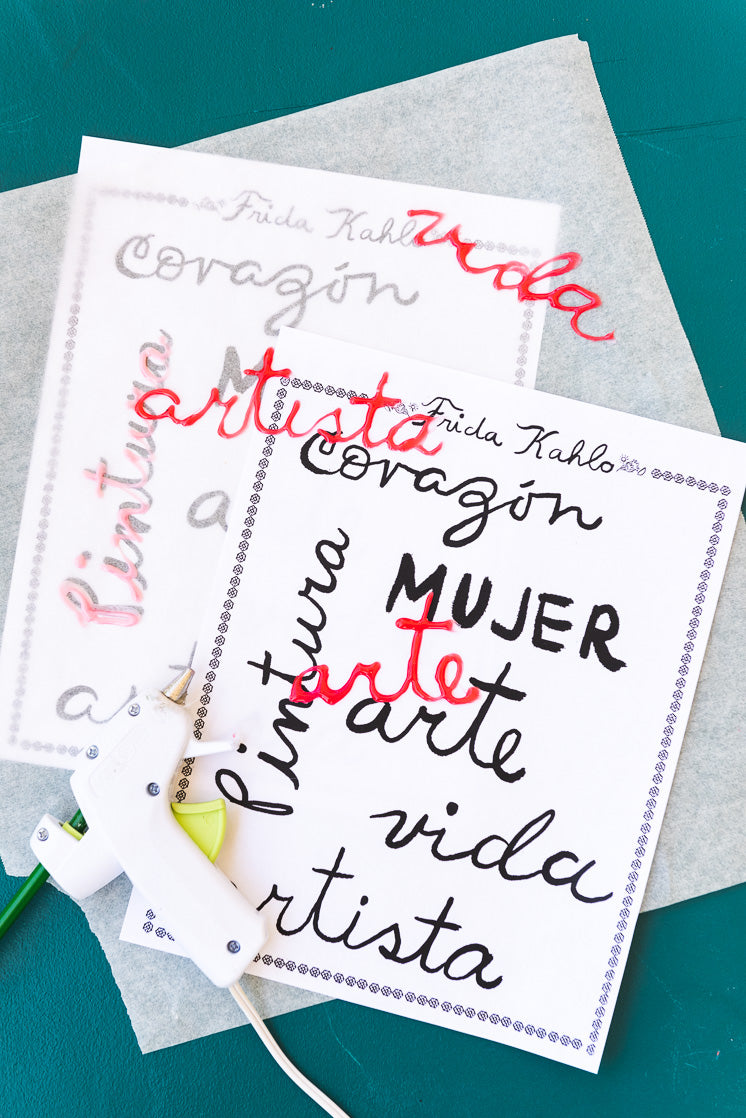 Frida Kahlo
vida
Corazón
pintura
M
artista
a
ar
Frida Kahlo
Corazón
pintura
MUJER
arte
arte
vida
artista